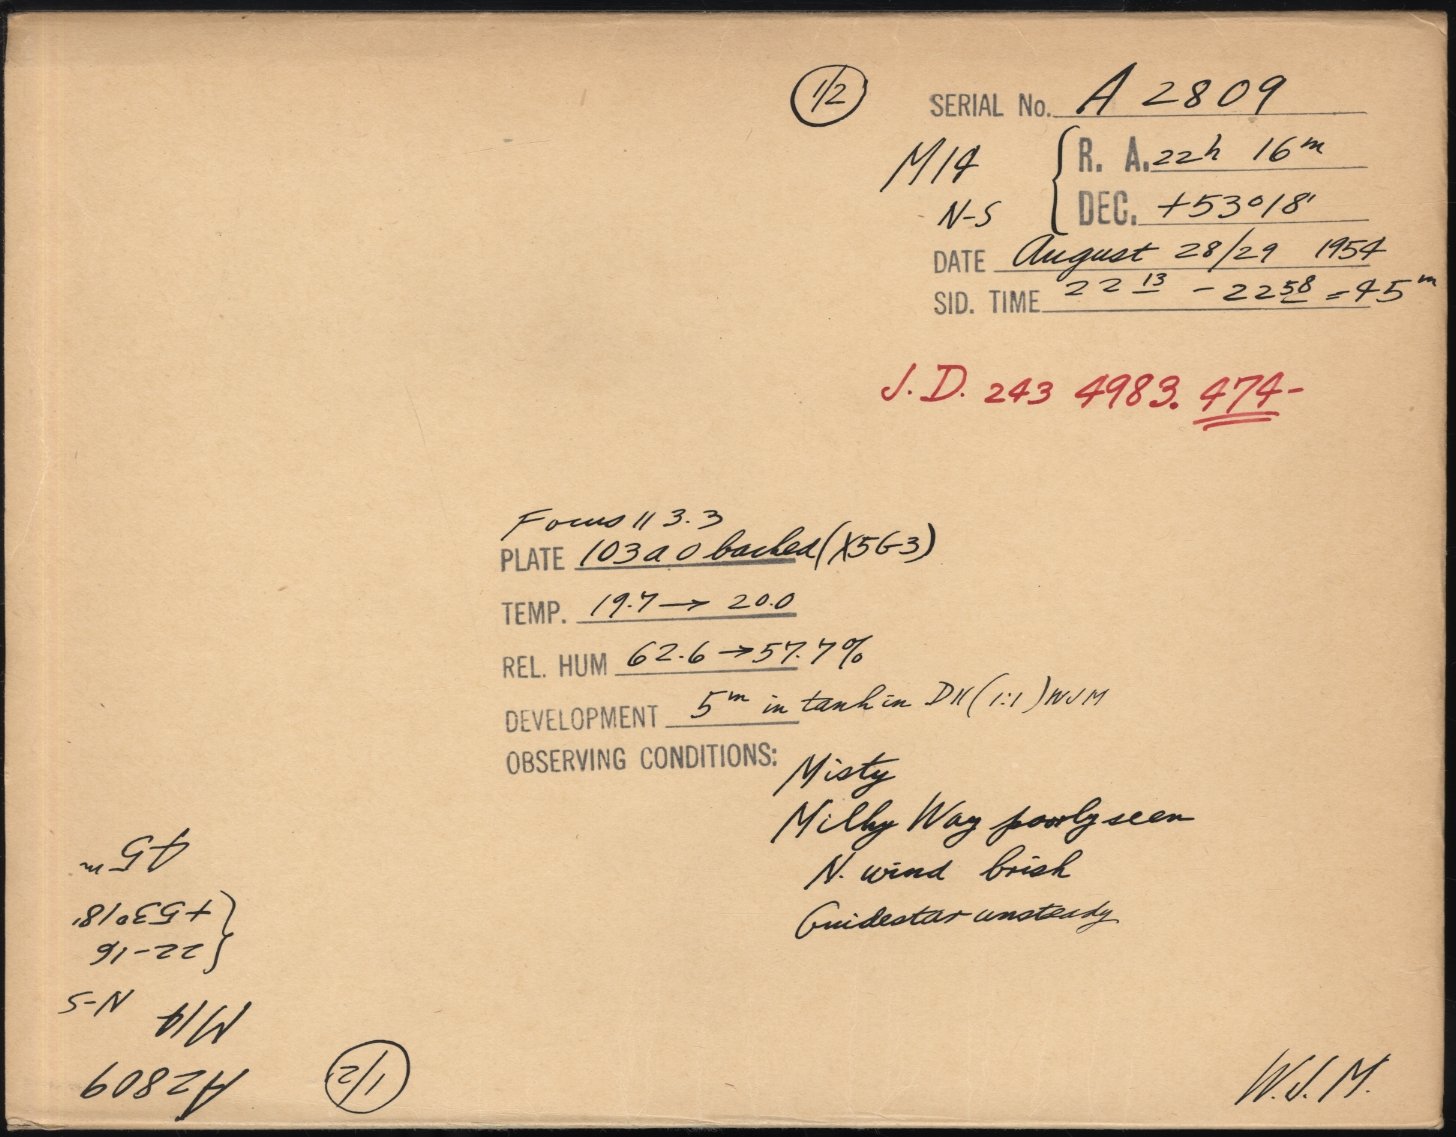 1/2
SERIAL No. A 2809
M14 { R. A. 22h 16m
N-S DEC. +53°18'
DATE August 28/29 1954
SID. TIME 22 13 - 22 58 = 45m
J.D. 243 4983. 474-
Focus 113.3
PLATE 103a O backed (X5G3)
TEMP. 19.7 → 20.0
REL. HUM 62.6 → 57.7%
DEVELOPMENT 5m in tank in D11 (1:1) WJM
OBSERVING CONDITIONS: Misty
Milky Way poorly seen
N. wind brisk
Guidestar unsteady
W.J.M.
1/2
A2809
M14
N-S
{ 22-16
+53°18'
45m